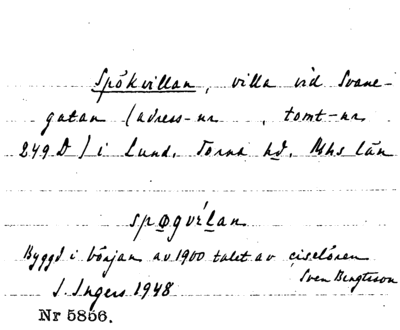 Spökvillan, villa vid Svane-
gatan (adress-nr , tomt-nr
249 D) i Lund, Torna hd, Mhs län
spøgvílan
Byggd i början av 1900 talet av ciselören
Sven Bengtsson
I. Ingers 1948
Nr 5856.